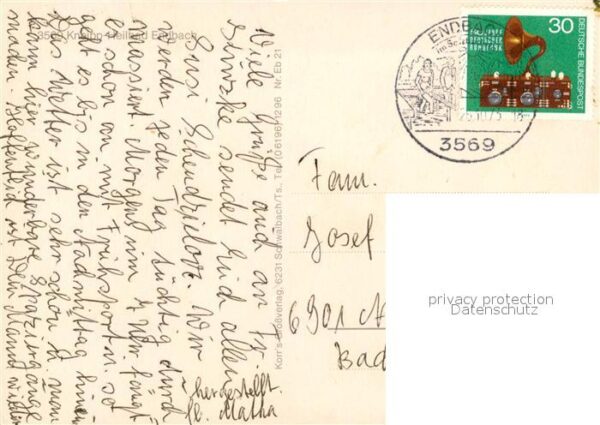 3569 Kneipp-Heilbad Endbach
Viele Grüße auch an Fr.
Stürzke sendet Euch allen
Susi Schendzielorz. Wir
werden jeden Tag tüchtig durch
massiert. Morgens um 7 Uhr fängt
es schon an mit Frühsport u. so
geht es bis in den Nachmittag hinein
Das Wetter ist sehr schön u. man
kann hier wunderbare Spaziergänge
machen. Hoffentlich ist Dein Mann wieder
hergestellt.
Korr's Großverlag, 6231 Schwalbach/Ts., Tel. (0 6196) 12 96 Nr. Eb 21
ENDBACH
3569
30
DEUTSCHE BUNDESPOST
50 JAHRE
DEUTSCHER
RUNDFUNK
Fam.
Josef
6901
Bad
privacy protection
Datenschutz